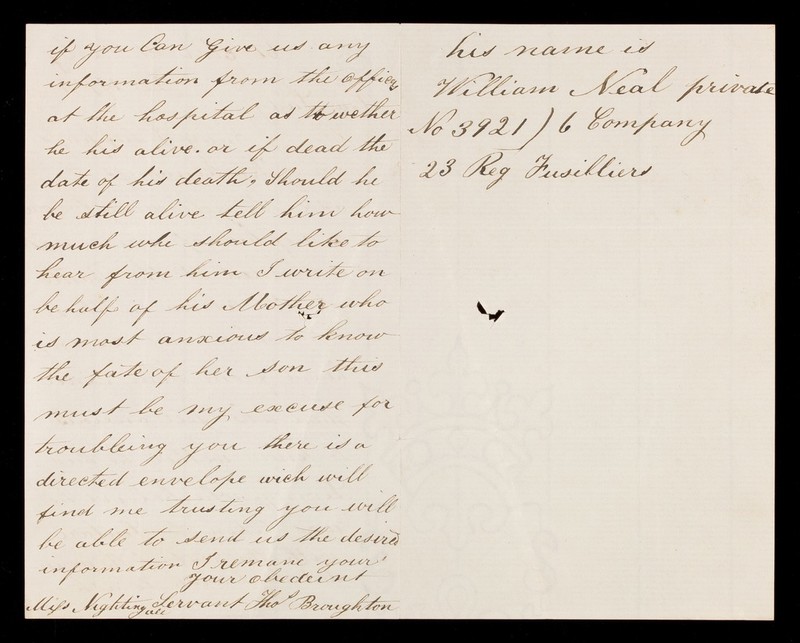 if you Can Give us any
information from the officers
at the hospital as to wether
he his alive. or if dead the
date of his death. Should he
be still alive tell him how
much whe should like to
hear from him I write on
behalf of his Mother who
is most anxious to know
the fate of her son this
must be my excuse for
troubleing you there is a
directed envelope wich will
find me trusting you will
be able to send us the desired
information I remane your
your obedeint
Miss Nightingale Servant Thos Broughton
his name is
William Neal private
No 3921 ) 6 Company
23 Reg Fusilliers